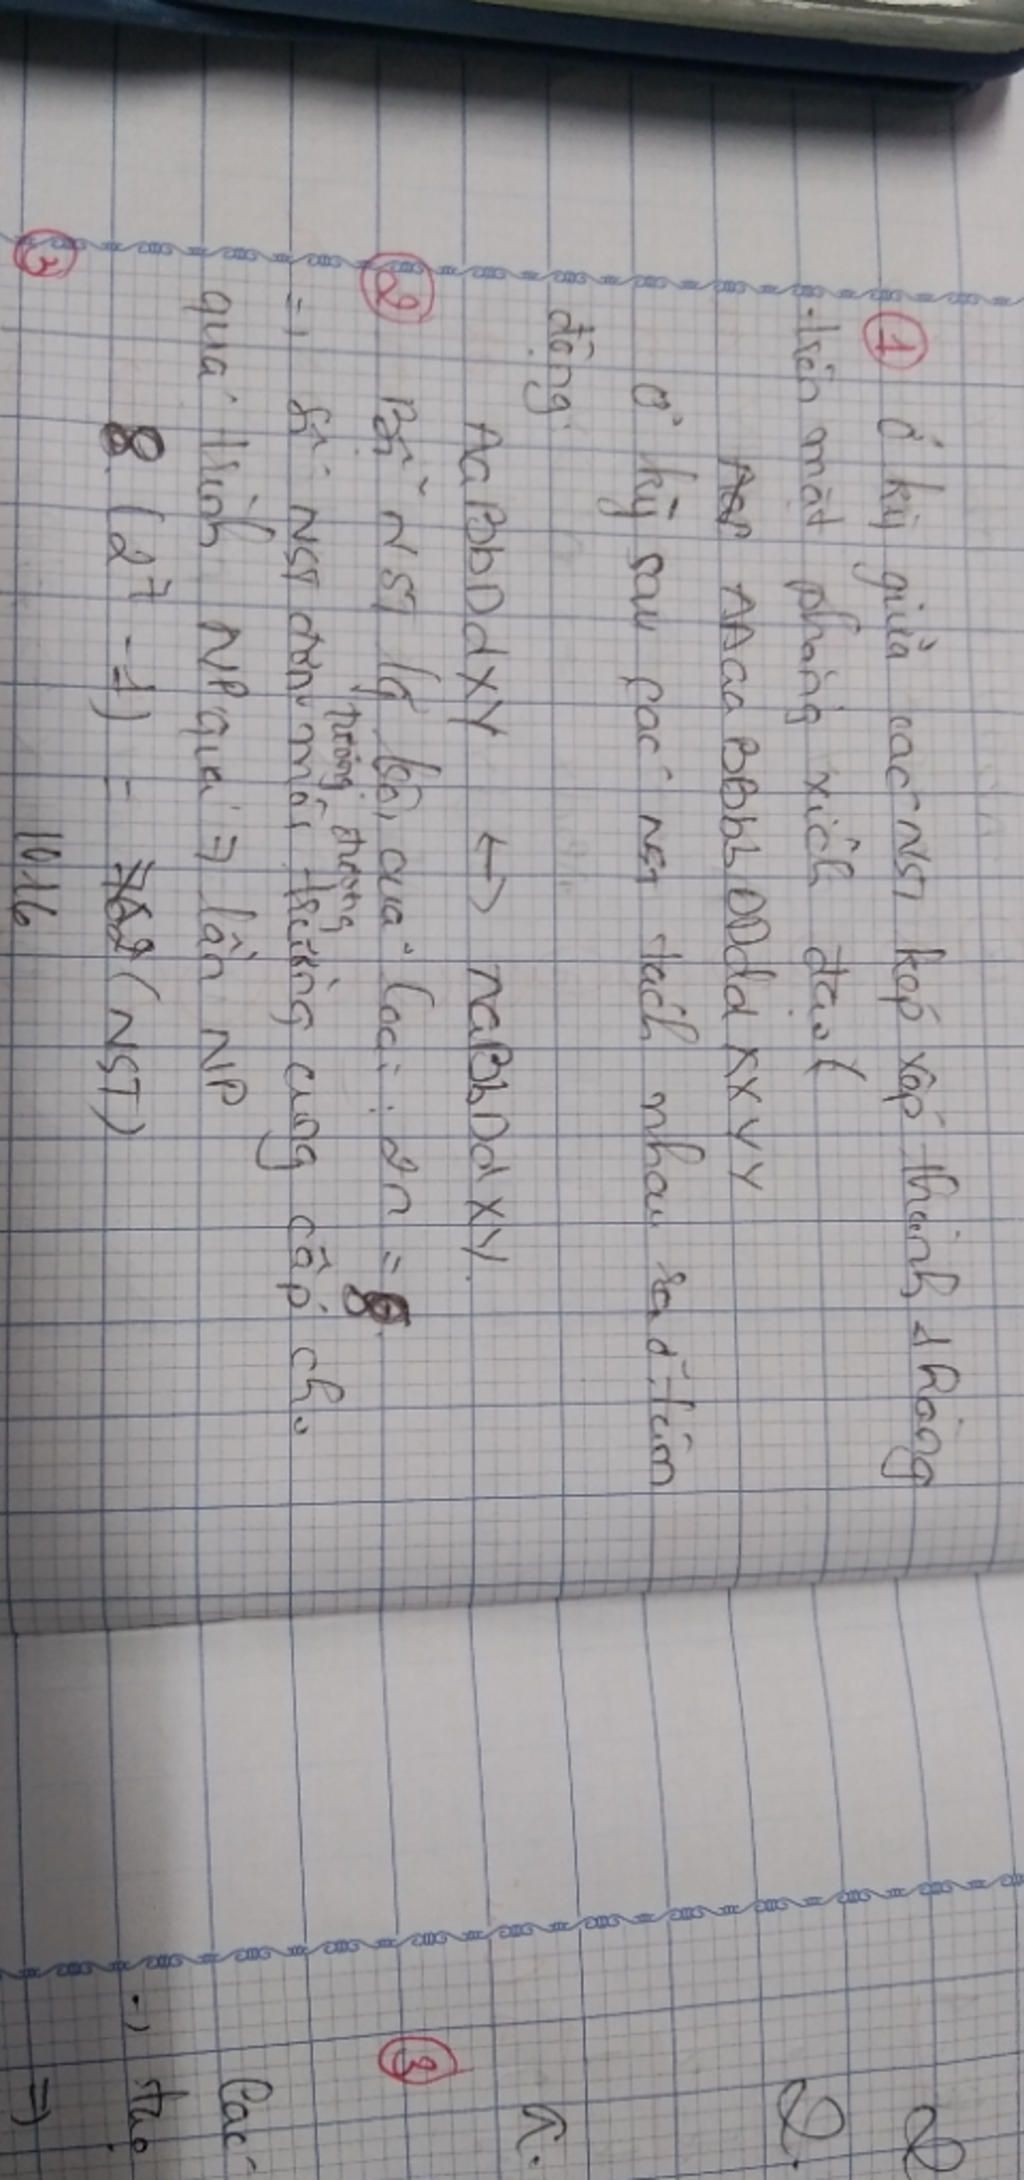 ① ở kỳ giữa các NST kép xếp thành 1 hàng
trên mặt phẳng xích đạo
AAaa BBbb DDdd XXYY
ở kỳ sau các NST tách nhau ra ở tâm
động.
AaBbDdXY ↔ AaBbDdXY.
② Bộ NST lg bội của loài: 2n = 8
tương đương
=) Số NST đơn môi trường cung cấp cho
quá trình NP qua 7 lần NP
8 (2⁷ - 1) = (NST)
1016
③
2
2.
③
Các